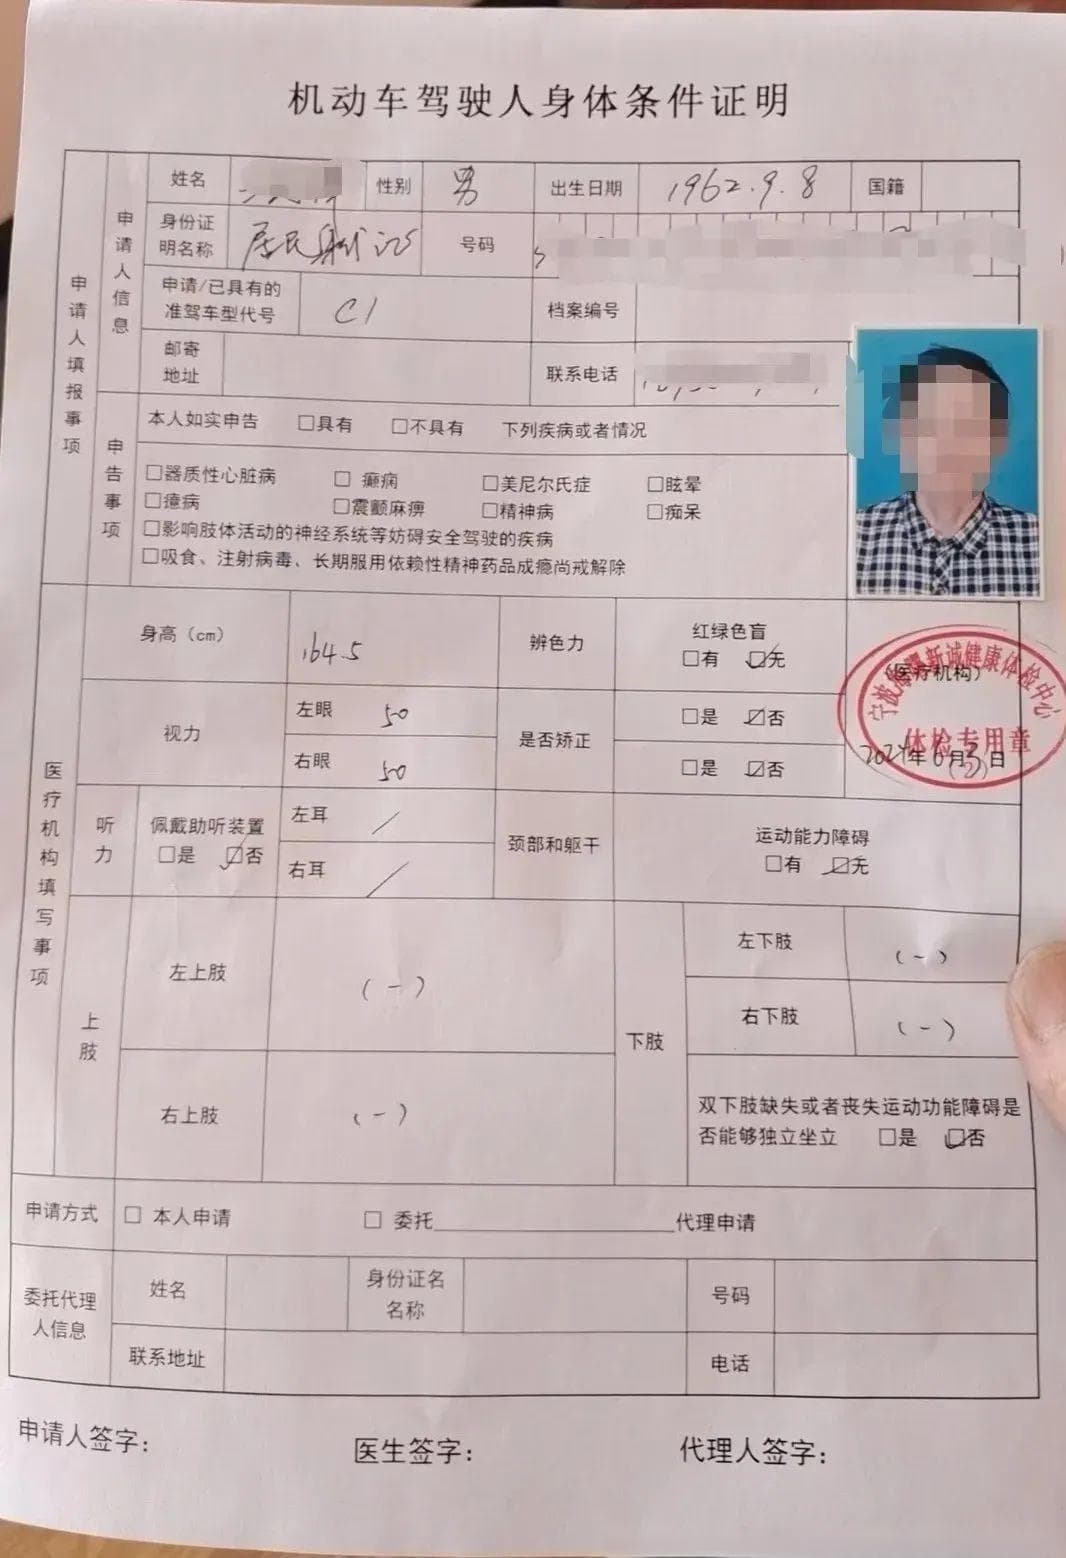 机动车驾驶人身体条件证明
申请人填报事项
申请人信息
姓名 性别 男 出生日期 1962.9.8 国籍
身份证明名称 居民身份证 号码
申请/已具有的准驾车型代号 C1 档案编号
邮寄地址 联系电话
申告事项
本人如实申告 □具有 □不具有 下列疾病或者情况
□器质性心脏病 □癫痫 □美尼尔氏症 □眩晕
□癔病 □震颤麻痹 □精神病 □痴呆
□影响肢体活动的神经系统等妨碍安全驾驶的疾病
□吸食、注射病毒、长期服用依赖性精神药品成瘾尚戒解除
医疗机构填写事项
身高（cm） 164.5 辨色力 红绿色盲
□有 ☑无
视力 左眼 50 是否矫正 □是 ☑否
右眼 50 □是 ☑否
（医疗机构）
宁波 新诚健康体检中心
体检专用章
(2)
2024年6月3日
听力 佩戴助听装置 □是 ☑否 左耳 /
右耳 /
颈部和躯干 运动能力障碍
□有 ☑无
上肢 左上肢 (-)
右上肢 (-)
下肢 左下肢 (-)
右下肢 (-)
双下肢缺失或者丧失运动功能障碍是
否能够独立坐立 □是 ☑否
申请方式 □ 本人申请 □ 委托____________代理申请
委托代理人信息 姓名 身份证名名称 号码
联系地址 电话
申请人签字： 医生签字： 代理人签字：